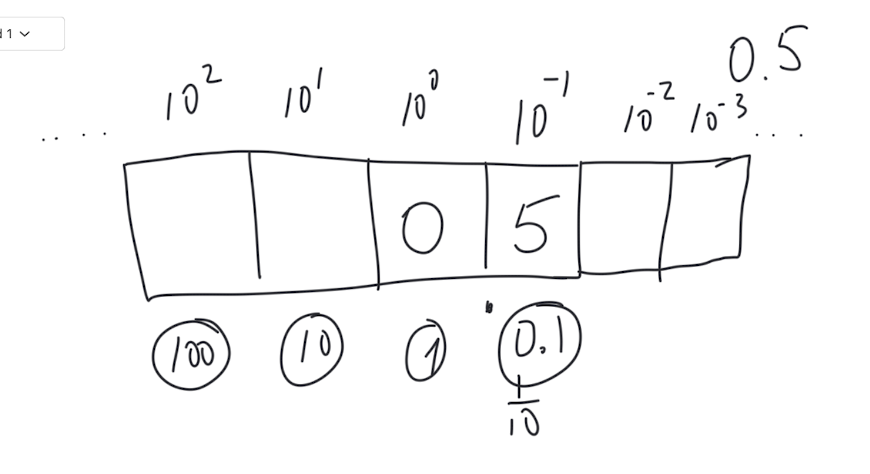 d 1
0.5
.... 10² 10¹ 10⁰ 10⁻¹ 10⁻² 10⁻³ ...
0 5
100 10 1 . 0.1
1/10